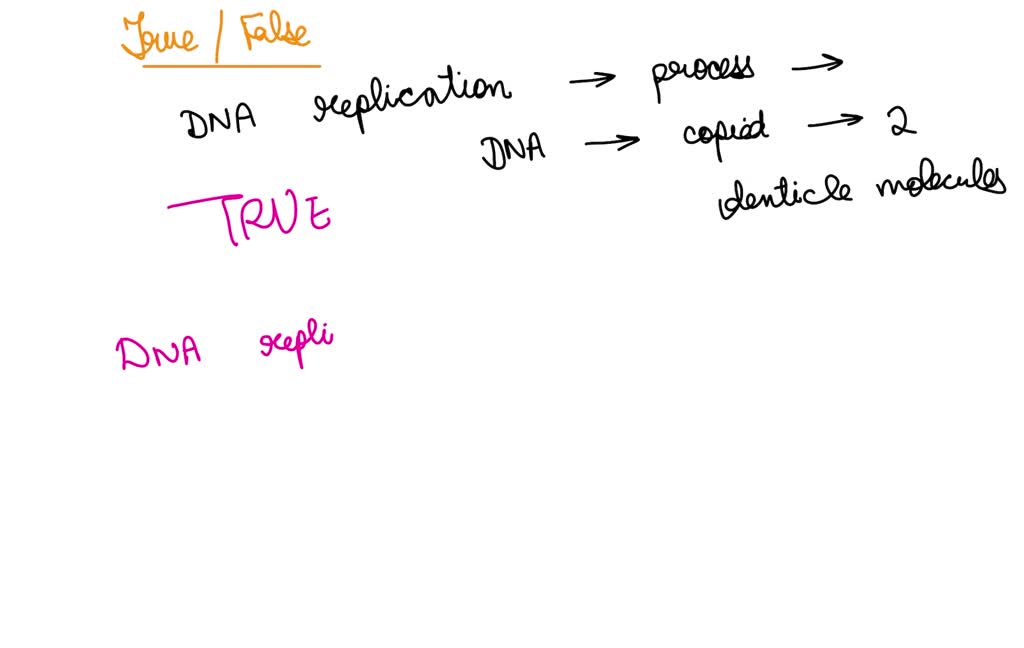 True / False
DNA replication → process →
DNA → copied → 2
identicle molecules
TRUE
DNA repli